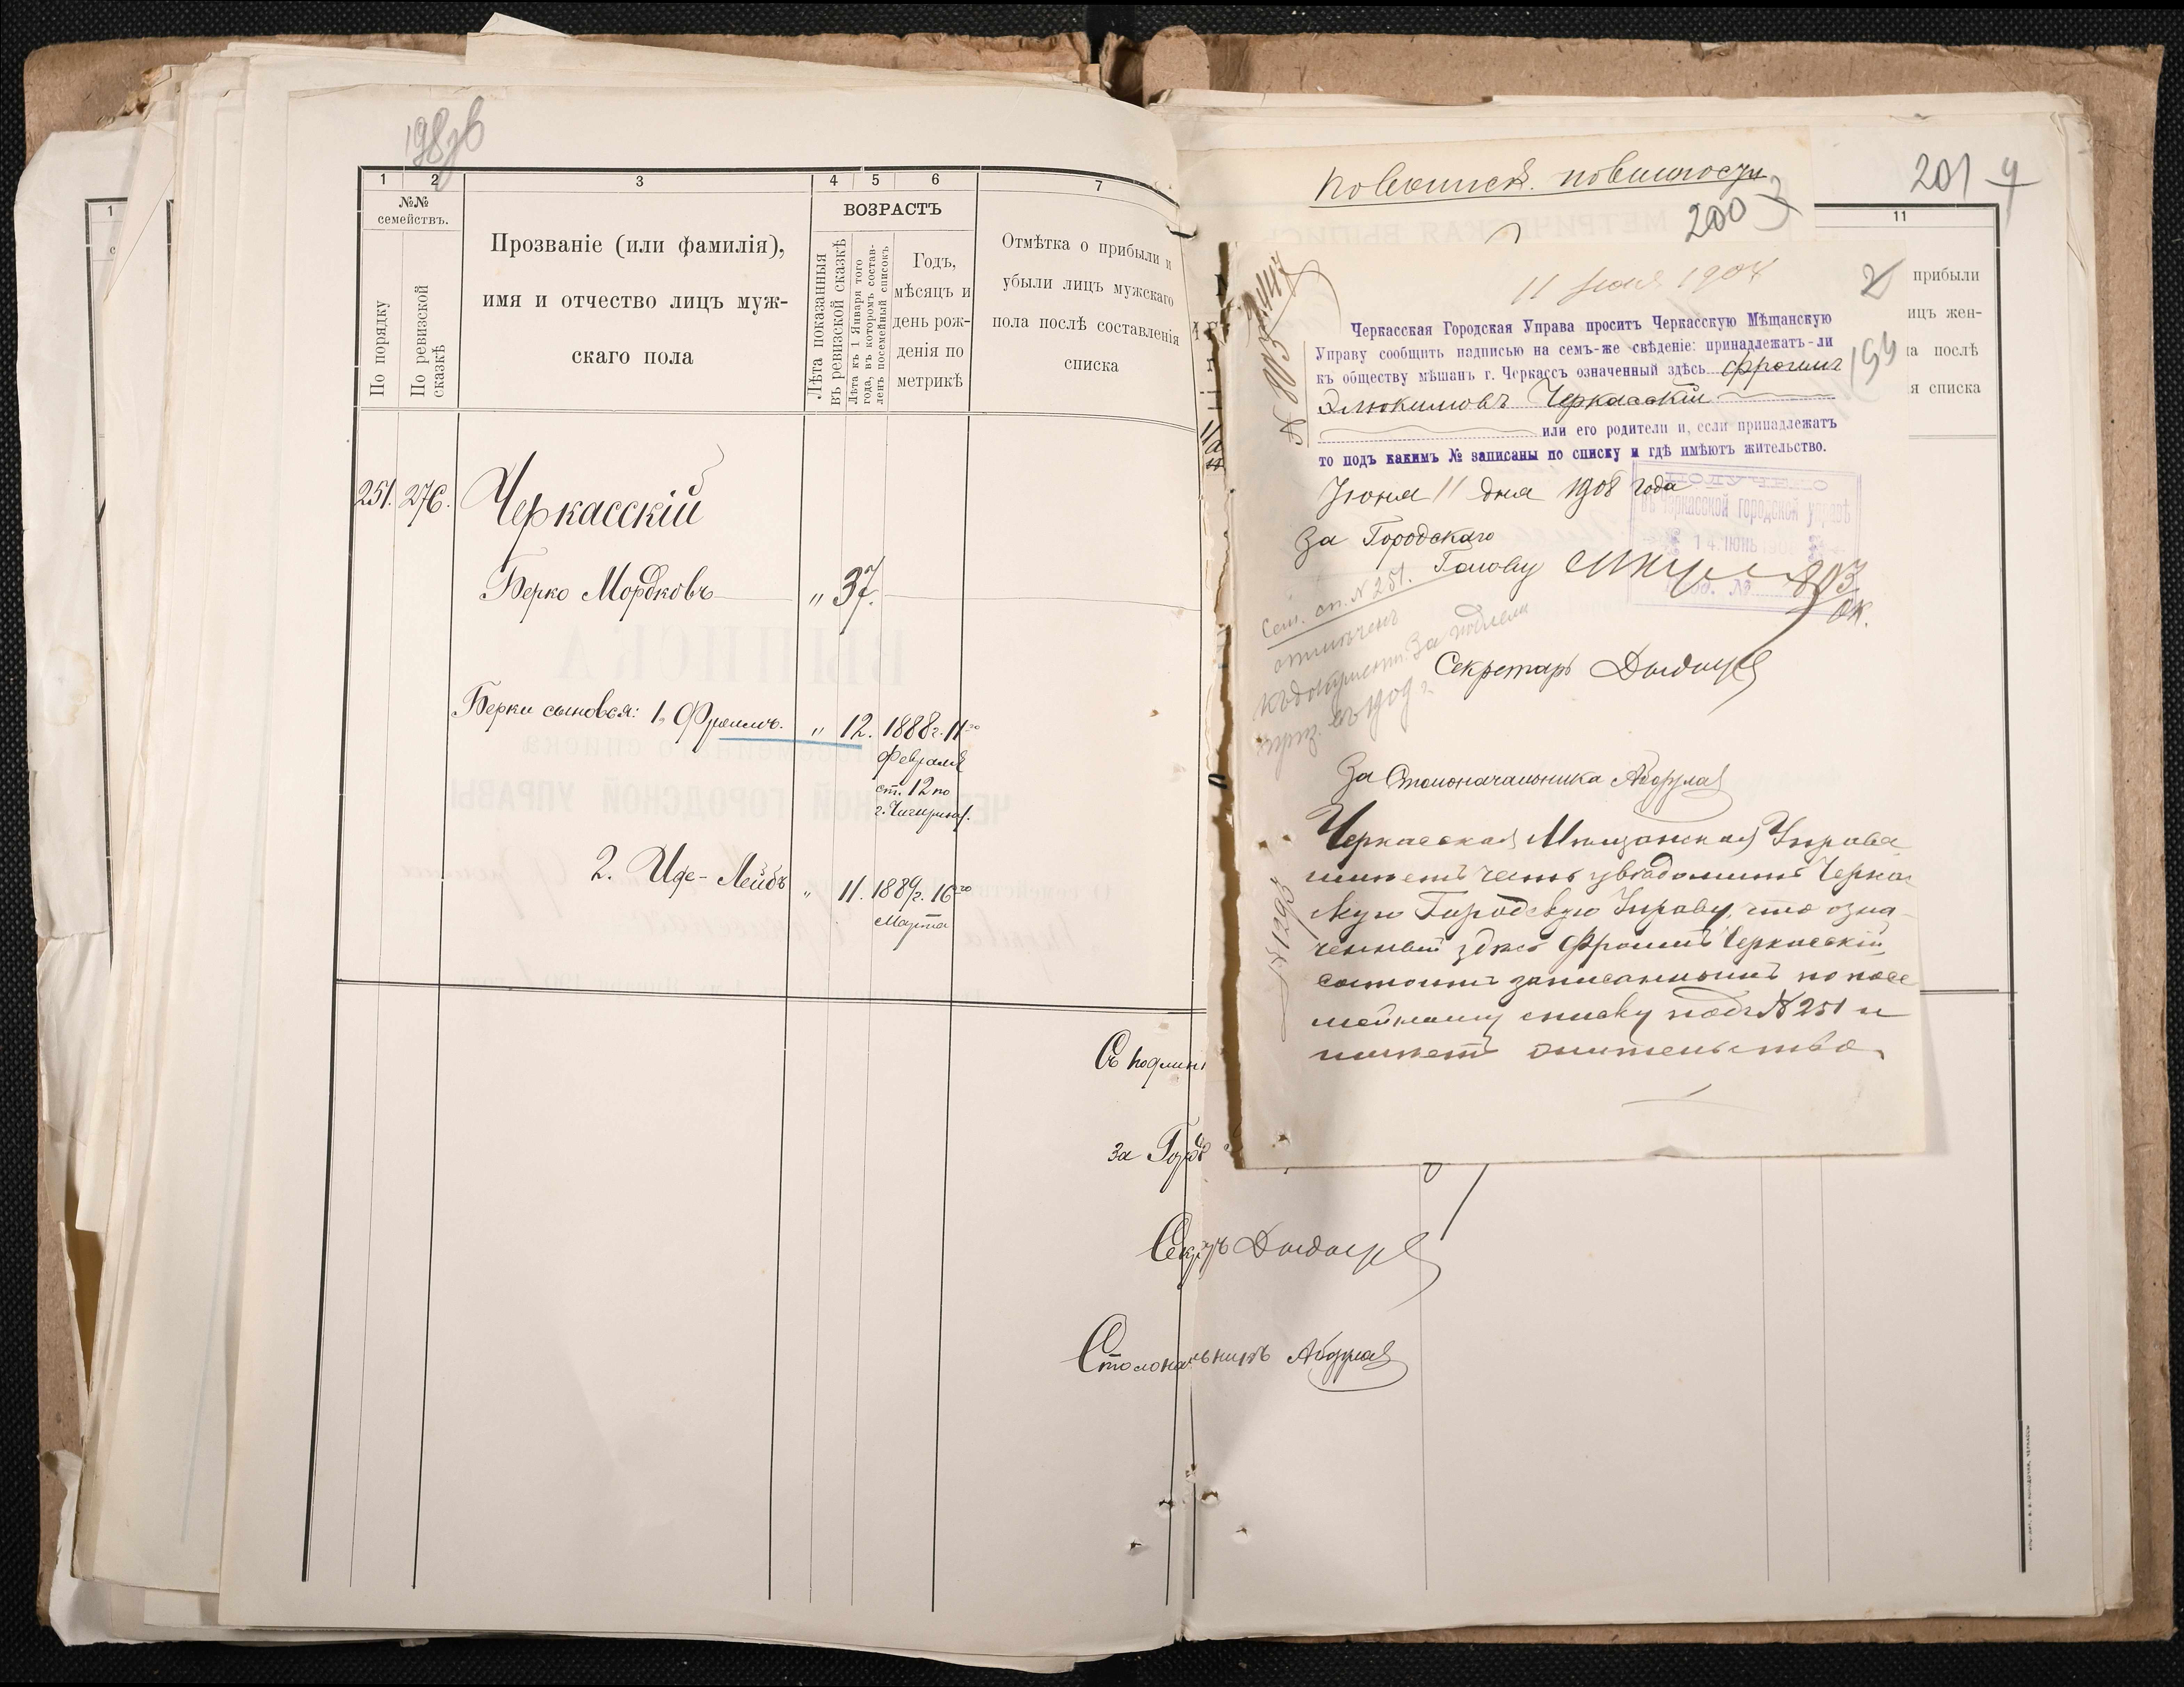 198об
1 2 3 4 5 6 7
№№
семействъ.
По порядку
По ревизской
сказкѣ
Прозваніе (или фамилія),
имя и отчество лицъ муж-
скаго пола
ВОЗРАСТЪ
Лѣта показанныя
въ ревизской сказкѣ
Лѣта къ 1 Января того
года, въ которомъ состав-
ленъ посемейный списокъ
Годъ,
мѣсяцъ и
день рож-
денія по
метрикѣ
Отмѣтка о прибыли и
убыли лицъ мужскаго
пола послѣ составленія
списка
251. 276. Черкасскій
Берко Мордковъ „ 37.
Берки сыновья: 1, Фроимъ. „ 12. 1888г. 11го
февраля
ст. 12 по
г. Чигирину.
2. Иде-Лейбъ „ 11. 1889г. 16го
Марта
Съ подлин
за Гор
Секр
Столона
По воинск. повинности
200
201
11
прибыли
ицъ жен-
а послѣ
я списка
194
11 июня 1908
№ 803
Черкасская Городская Управа проситъ Черкасскую Мѣщанскую
Управу сообщить надписью на семъ-же свѣденіе: принадлежатъ-ли
къ обществу мѣшанъ г. Черкассъ означенный здѣсь Фроимъ
Черкасскій
или его родители и, если принадлежатъ
то подъ какимъ № записаны по списку и гдѣ имѣютъ жительство.
Июня 11 дня 1908 года
За Городскаго
Голову
Черкасской городской управѣ
14 ИЮНЬ 1908
803
Сем. сп. № 251.
отмѣченъ
приз. въ 1909 г.
Секретарь
За Столоначальника
Черкасская Мѣщанская Управа
имѣетъ честь увѣдомить Черкас
скую Городскую Управу, что озна-
ченный здѣсь Фроимъ Черкасскій
состоитъ записаннымъ по посе
мейному списку подъ № 251 и
имѣетъ жительство
№ 1293